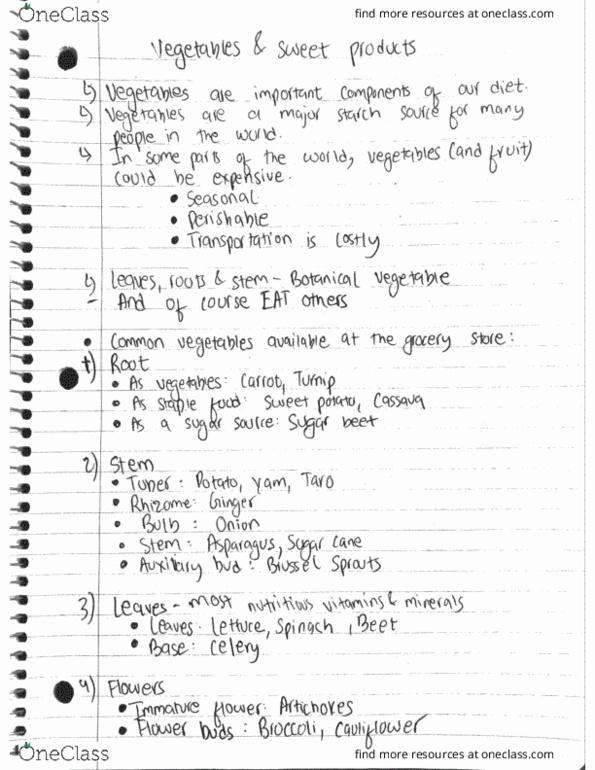 OneClass
find more resources at oneclass.com
Vegetables & sweet products
↳ Vegetables are important components of our diet.
↳ Vegetables are a major starch source for many
people in the world.
↳ In some parts of the world, vegetables (and fruit)
could be expensive.
• Seasonal
• Perishable
• Transportation is costly
↳ Leaves, roots & stem - Botanical vegetable
- And of course EAT others
• Common vegetables available at the grocery store:
1) Root
• As vegetables: Carrot, Turnip
• As staple food: Sweet potato, Cassava
• As a sugar source: Sugar beet
2) Stem
• Tuber: Potato, yam, Taro
• Rhizome: Ginger
• Bulb: Onion
• Stem: Asparagus, Sugar cane
• Auxillary bud: Brussel Sprouts
3) Leaves - most nutritious vitamins & minerals
• Leaves: lettuce, Spinach, Beet
• Base: celery
4) Flowers
• Immature flower: Artichokes
• Flower buds: Broccoli, cauliflower
OneClass
find more resources at oneclass.com